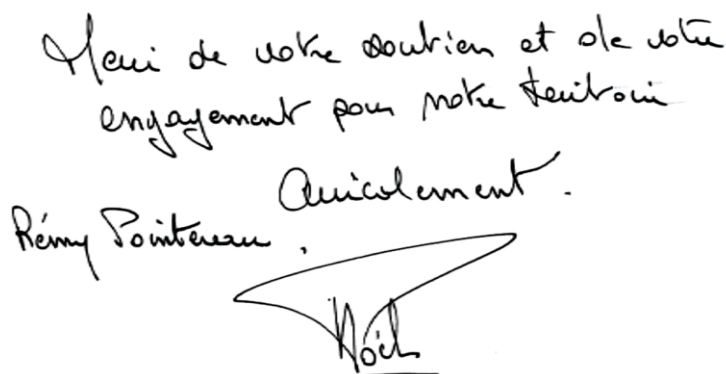 Merci de votre soutien et de votre
engagement pour notre territoire
Amicalement.
Rémy Pointereau.